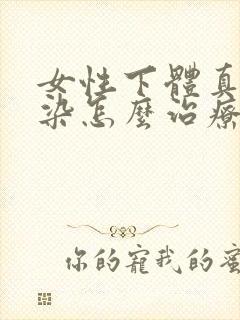 女性下體真
染怎麼治療
你的寵我的蜜